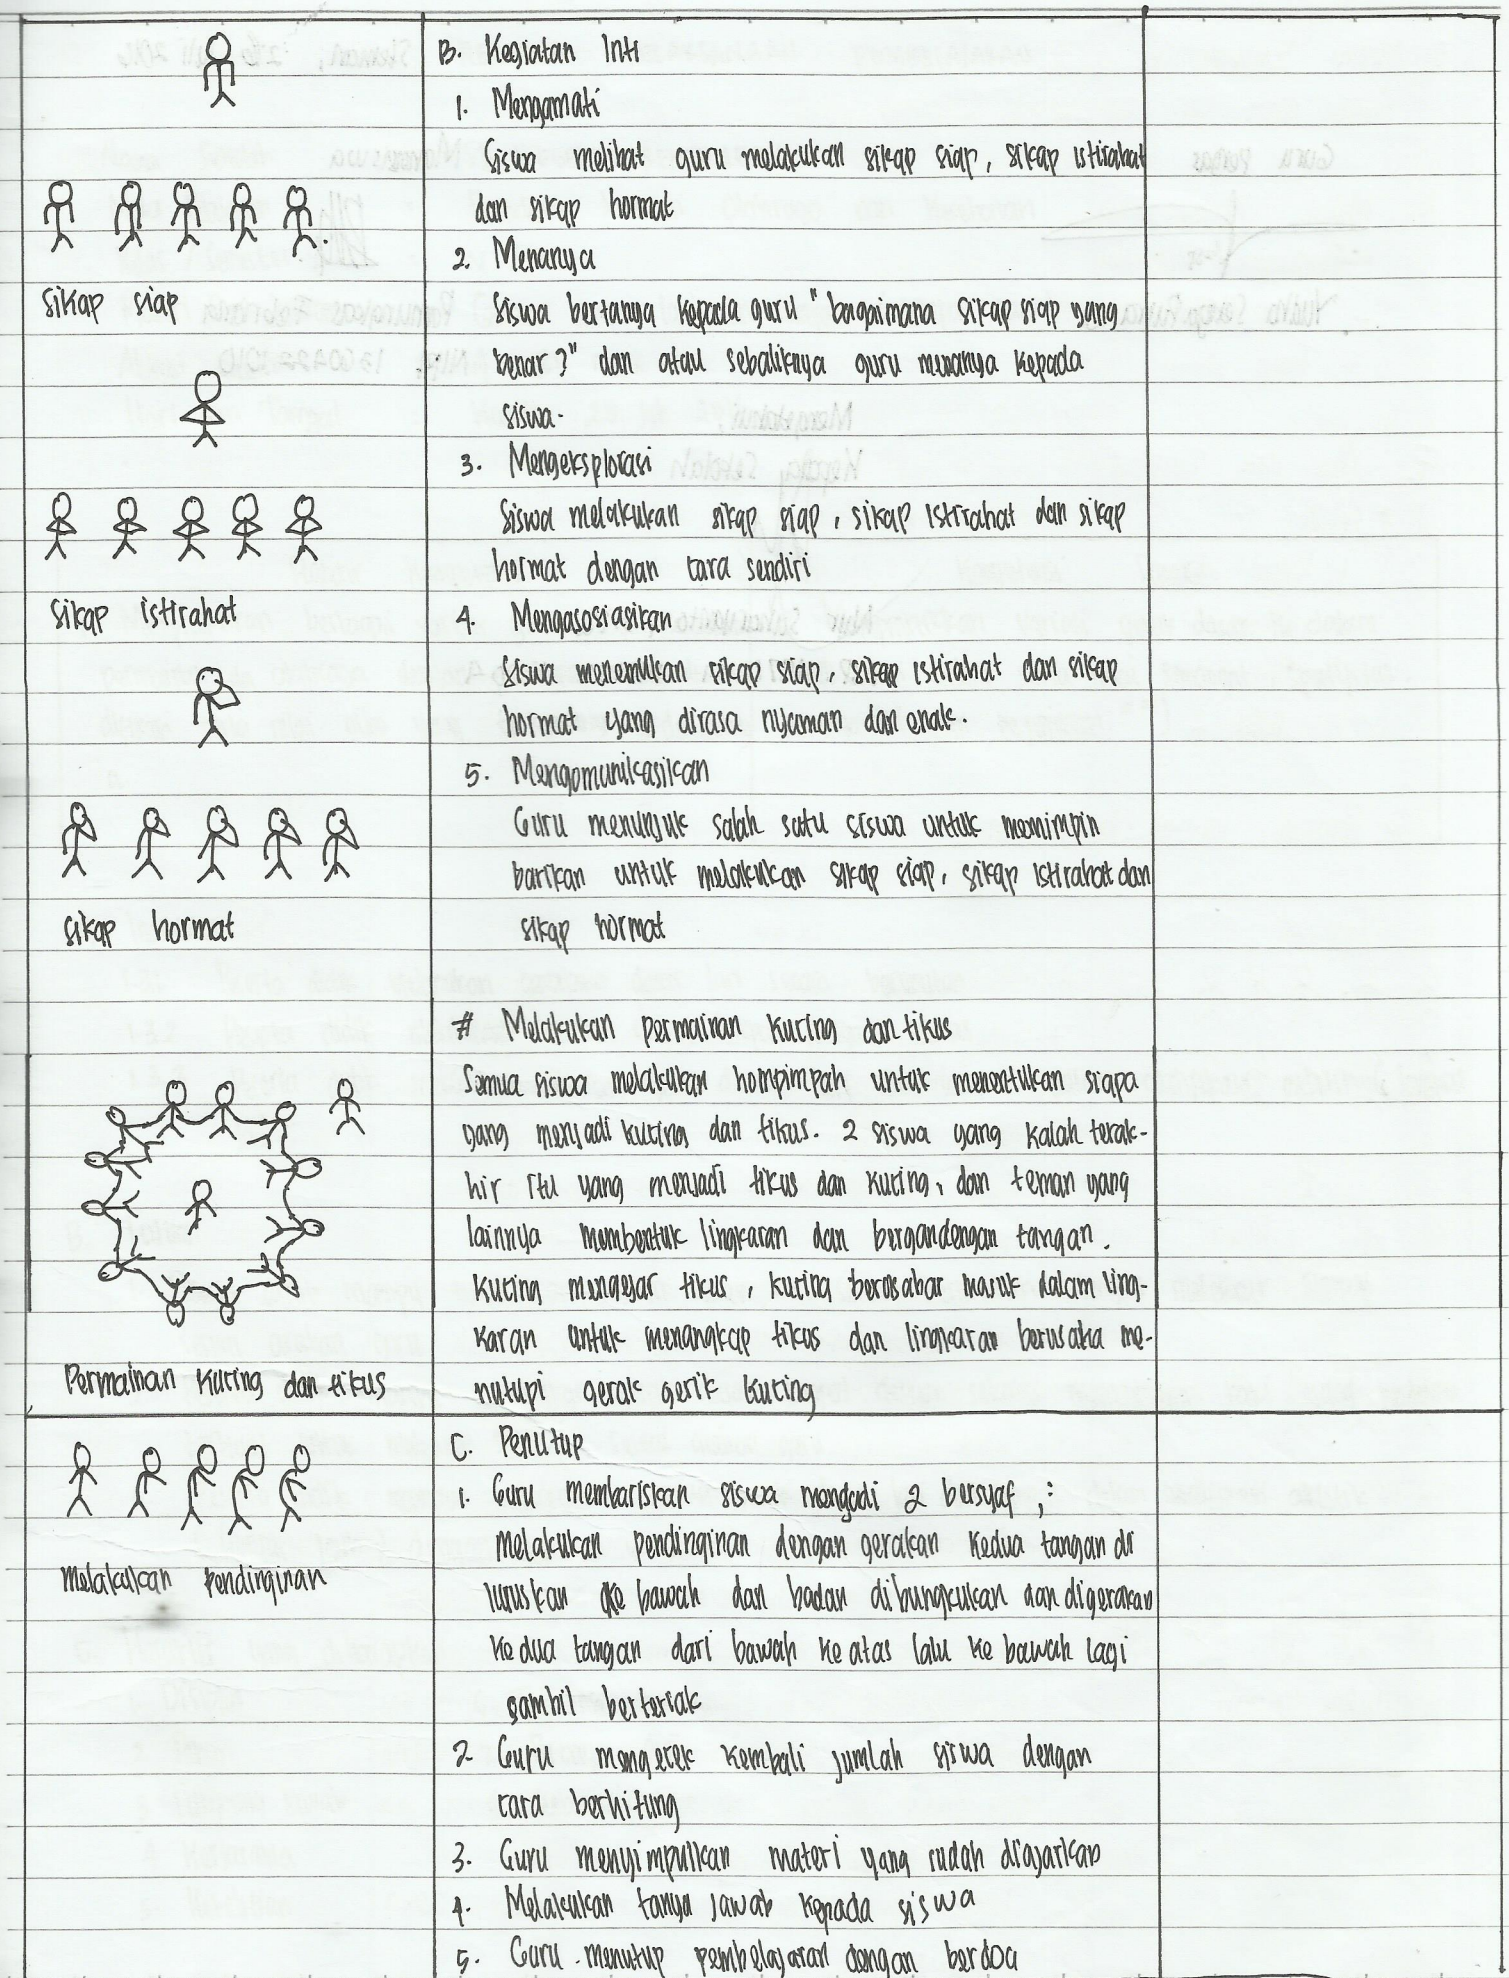 B. Kegiatan Inti
1. Mengamati
Siswa melihat guru melakukan sikap siap, sikap istirahat
dan sikap hormat
2. Menanya
Siswa bertanya kepada guru "bagaimana sikap siap yang
benar?" dan atau sebaliknya guru menanya kepada
siswa.
3. Mengeksplorasi
Siswa melakukan sikap siap, sikap istirahat dan sikap
hormat dengan cara sendiri
4. Mengasosiasikan
Siswa menemukan sikap siap, sikap istirahat dan sikap
hormat yang dirasa nyaman dan enak.
5. Mengomunikasikan
Guru menunjuk salah satu siswa untuk memimpin
barisan untuk melakukan sikap siap, sikap istirahat dan
sikap hormat
# Melakukan permainan kucing dan tikus
Semua siswa melakukan hompimpah untuk menentukan siapa
yang menjadi kucing dan tikus. 2 siswa yang kalah terak-
hir itu yang menjadi tikus dan kucing, dan teman yang
lainnya membentuk lingkaran dan bergandengan tangan.
Kucing mengejar tikus, kucing berusahar masuk dalam ling-
karan untuk menangkap tikus dan lingkaran berusaha me-
nutupi gerak gerik kucing
sikap siap
sikap istirahat
sikap hormat
Permainan kucing dan tikus
C. Penutup
1. Guru membariskan siswa menjadi 2 bersyaf,:
melakukan pendinginan dengan gerakan kedua tangan di
luruskan ke bawah dan badan dibungkukan dan digerakan
kedua tangan dari bawah ke atas lalu ke bawah lagi
sambil berteriak
2 Guru mengecek kembali jumlah siswa dengan
cara berhitung
3. Guru menyimpulkan materi yang sudah diajarkan
4. Melakukan tanya jawab kepada siswa
5. Guru menutup pembelajaran dengan berdoa
melakukan pendinginan